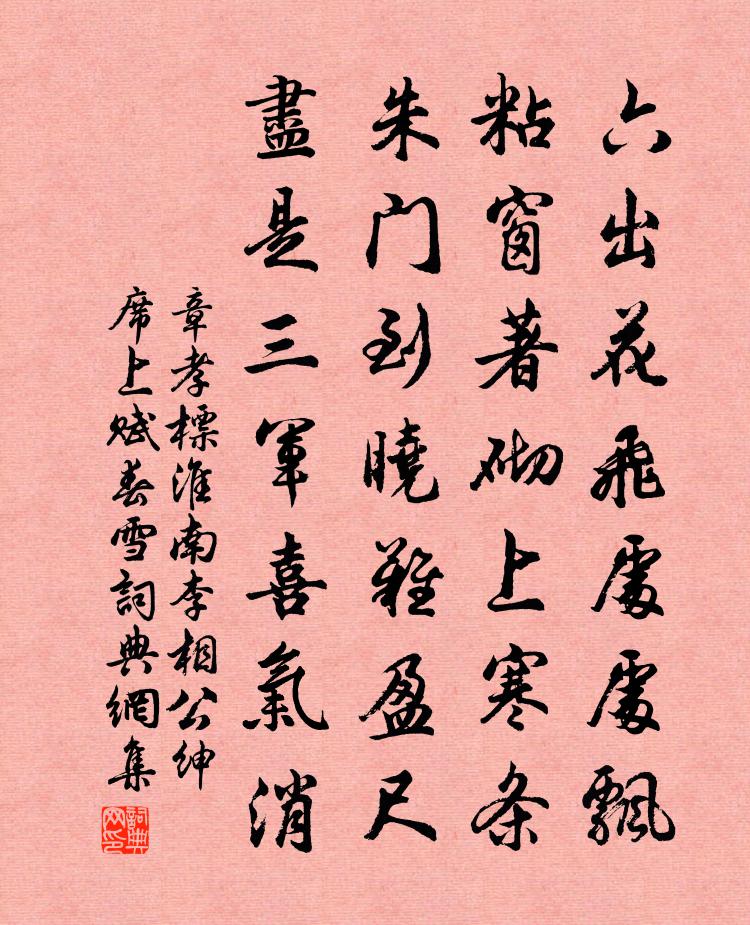 六出花飛處處飄
粘窗著砌上寒条
朱门到曉難盈尺
盡是三軍喜氣消
章孝標淮南李相公紳
席上赋春雪詞典網集
詞典网印